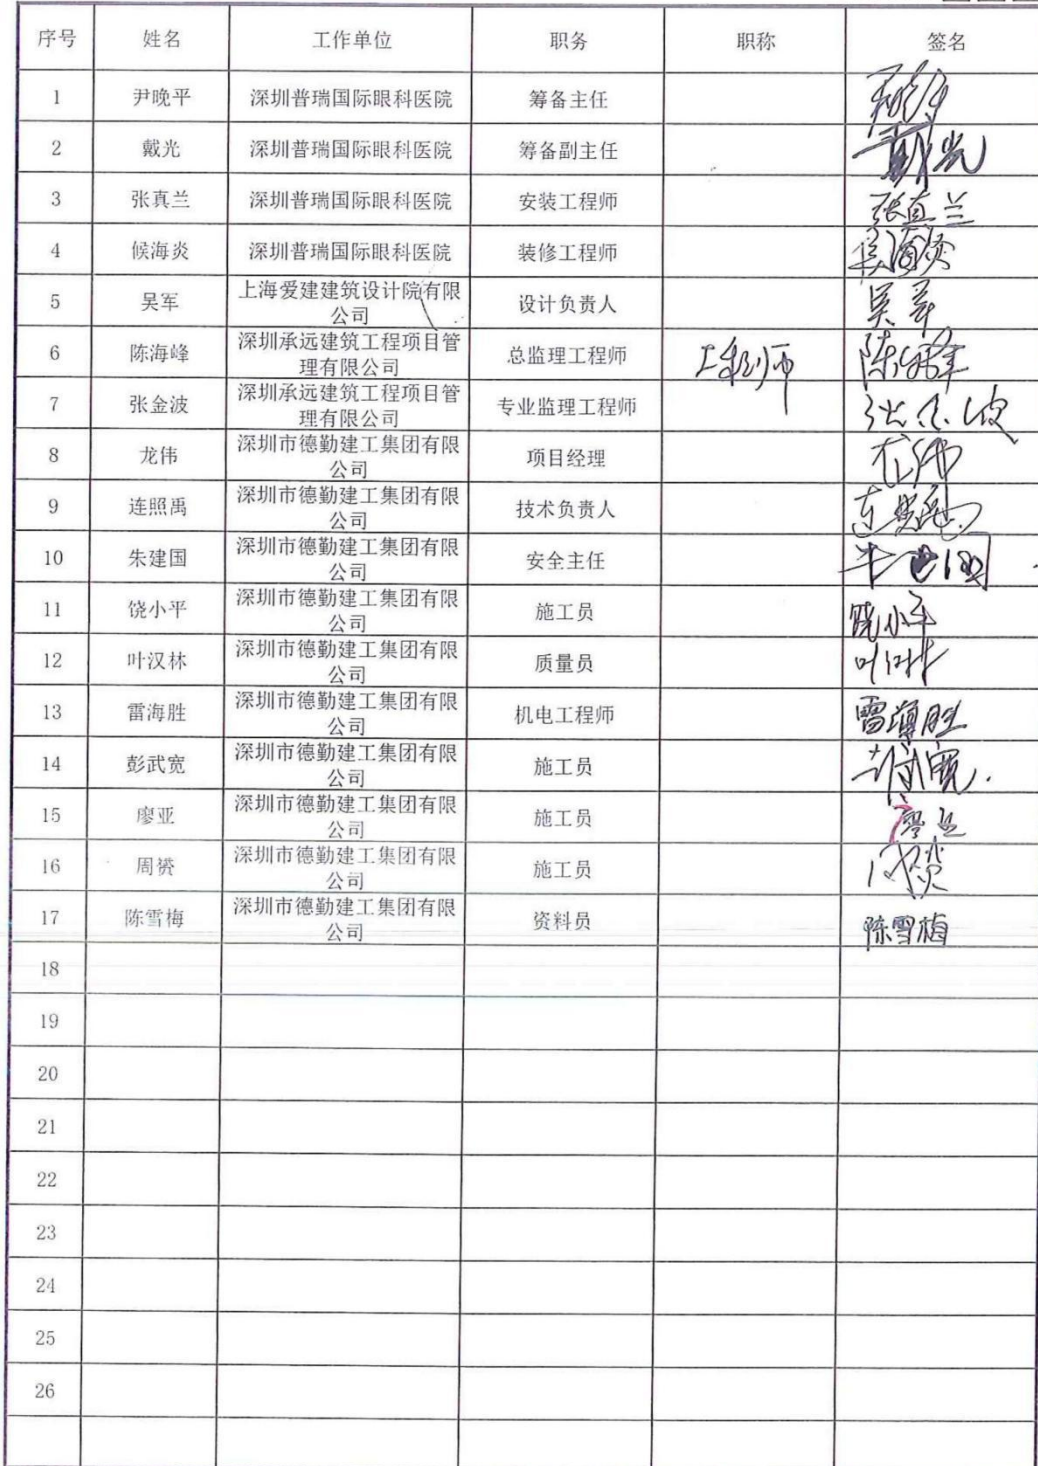 序号 姓名 工作单位 职务 职称 签名
1 尹晚平 深圳普瑞国际眼科医院 筹备主任
2 戴光 深圳普瑞国际眼科医院 筹备副主任 戴光
3 张真兰 深圳普瑞国际眼科医院 安装工程师 张真兰
4 候海炎 深圳普瑞国际眼科医院 装修工程师 侯海炎
5 吴军 上海爱建建筑设计院有限 设计负责人 吴军
公司
6 陈海峰 深圳承远建筑工程项目管 总监理工程师 工程师 陈海峰
理有限公司
7 张金波 深圳承远建筑工程项目管 专业监理工程师 张金波
理有限公司
8 龙伟 深圳市德勤建工集团有限 项目经理 龙伟
公司
9 连照禹 深圳市德勤建工集团有限 技术负责人 连照禹
公司
10 朱建国 深圳市德勤建工集团有限 安全主任
公司
11 饶小平 深圳市德勤建工集团有限 施工员 饶小平
公司
12 叶汉林 深圳市德勤建工集团有限 质量员 叶汉林
公司
13 雷海胜 深圳市德勤建工集团有限 机电工程师 雷海胜
公司
14 彭武宽 深圳市德勤建工集团有限 施工员 彭武宽
公司
15 廖亚 深圳市德勤建工集团有限 施工员 廖亚
公司
16 周赟 深圳市德勤建工集团有限 施工员
公司
17 陈雪梅 深圳市德勤建工集团有限 资料员 陈雪梅
公司
18
19
20
21
22
23
24
25
26